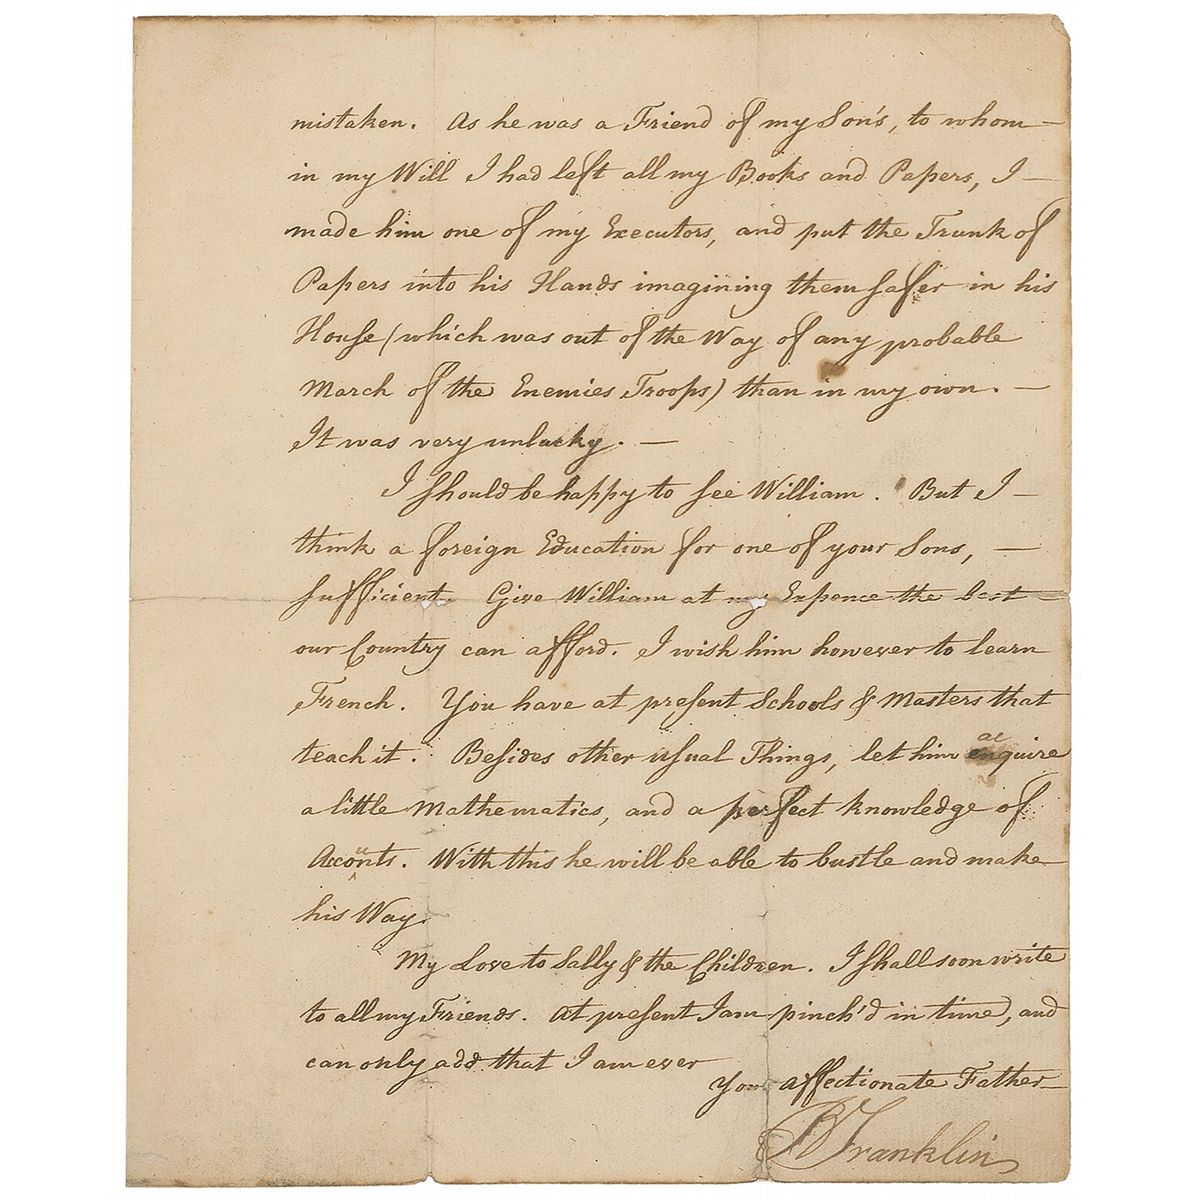 mistaken. As he was a Friend of my Son's, to whom —
in my Will I had left all my Books and Papers, I —
made him one of my Executors, and put the Trunk of
Papers into his Hands imagining them safer in his
House (which was out of the Way of any probable
March of the Enemies Troops) than in my own. —
It was very unlucky. —
I should be happy to see William. But I —
think a foreign Education for one of your Sons, —
sufficient. Give William at my Expence the best —
our Country can afford. I wish him however to learn
French. You have at present Schools & Masters that
teach it. Besides other usual Things, let him acquire
a little Mathematics, and a perfect knowledge of
Accounts. With this he will be able to bustle and make
his Way.
My Love to Sally & the Children. I shall soon write
to all my Friends. At present I am pinch'd in time, and
can only add that I am ever
Your affectionate Father —
B Franklin